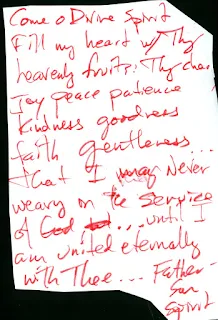 Come o Divine Spirit
Fill my heart w/ Thy
heavenly fruits: Thy
Joy peace patience
kindness goodness
faith gentleness...
that I may Never
weary on the service
of God ... until I
am united eternally
with Thee... Father -
Son
Spirit